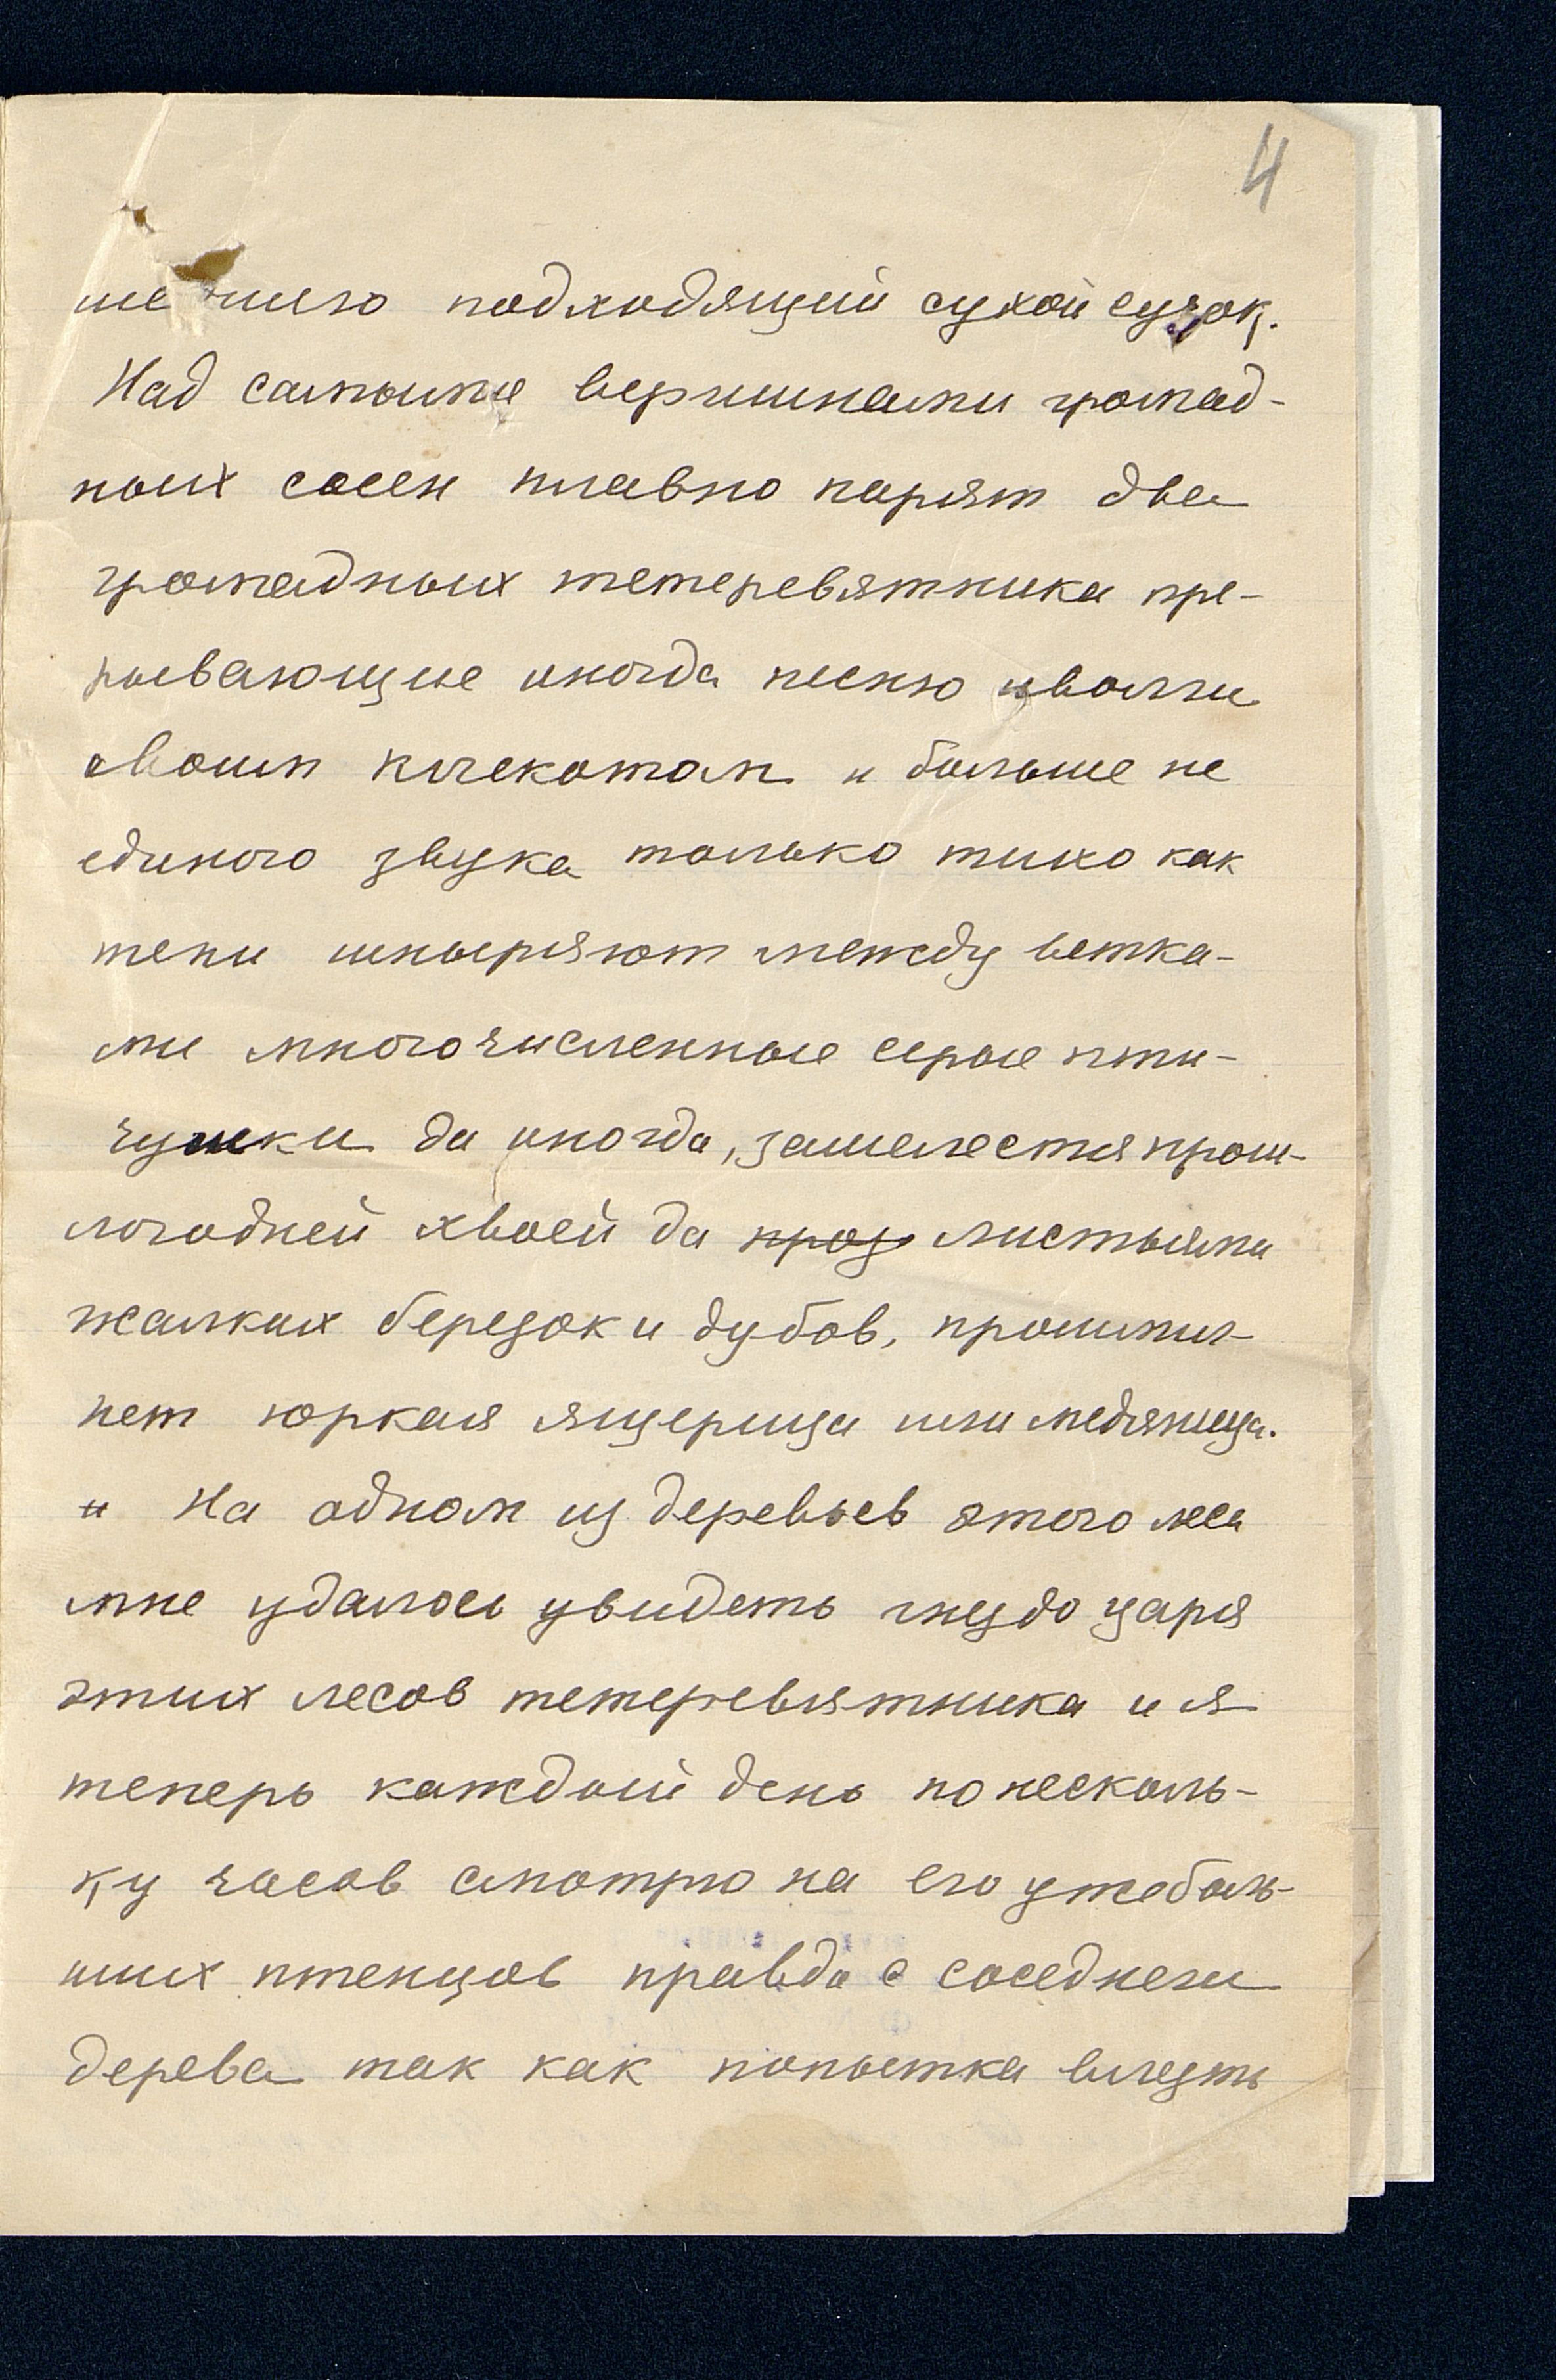 4
подходящий сухой сучок.
Над самыми вершинами громад-
ных сосен плавно парят два
громадных тетеревятника пре-
рывающие иногда песню иволги
своим клекотом и больше не
единого звука только тихо как
тени шныряют между ветка-
ми многочисленные серые пти-
чушки да иногда, зашелестя прош-
логодней хвоей да листьями
жалких березок и дубов, прошмыг-
нет юркая ящерица или медяница.
и На одном из деревьев этого леса
мне удалось увидеть гнездо царя
этих лесов тетеревятника и я
теперь каждый день по несколь-
ку часов смотрю на его уже боль-
ших птенцов правда с соседнего
дерева так как попытка влезть